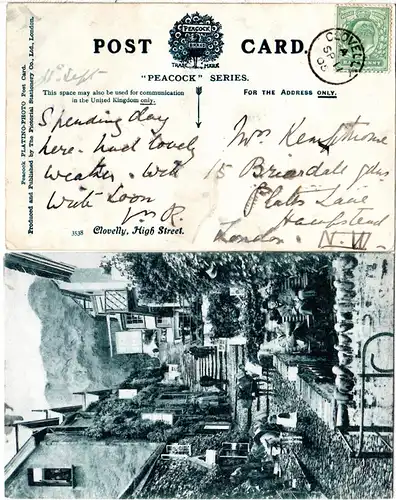 POST CARD.
PEACOCK
TRADE MARK
"PEACOCK" SERIES.
This space may also be used for communication
in the United Kingdom only.
FOR THE ADDRESS ONLY.
CLOVELLY
A
SP 11
Peacock PLATINO-PHOTO Post Card.
Produced and Published by The Pictorial Stationery Co., Ltd., London.
11th Sept
Spending day
here. had lovely
weather. Will
write soon
R.
Mrs Kempthorne
15 Briardale Gdns
Platts Lane
Hampstead
London. N.W.
3538 Clovelly, High Street.